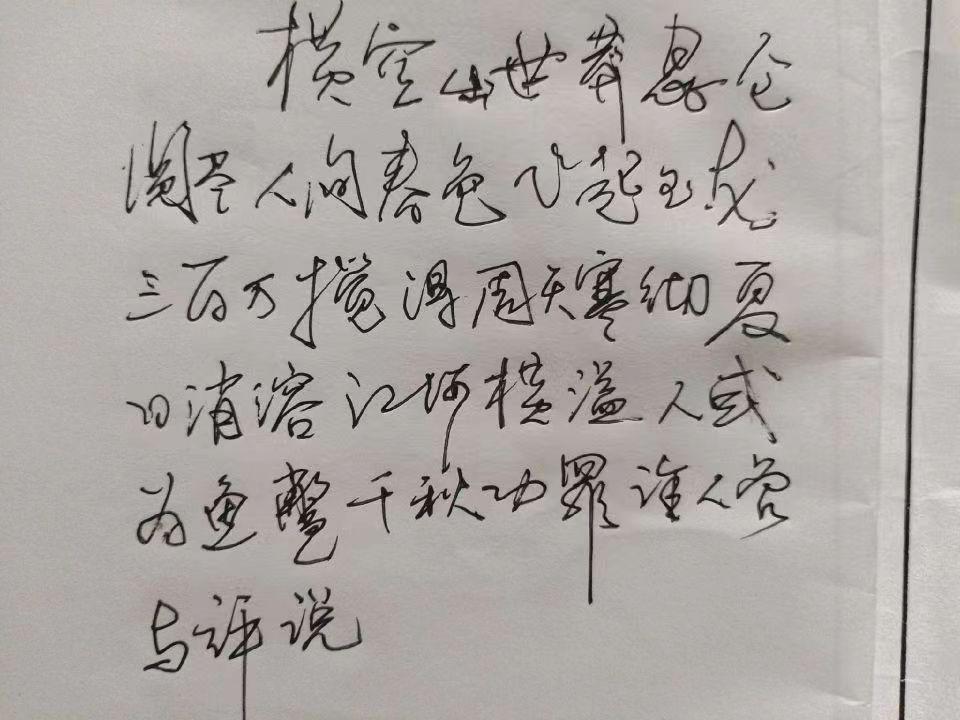 横空出世莽昆仑
阅尽人间春色飞起玉龙
三百万搅得周天寒彻夏
日消溶江河横溢人或
为鱼鳖千秋功罪谁人曾
与评说